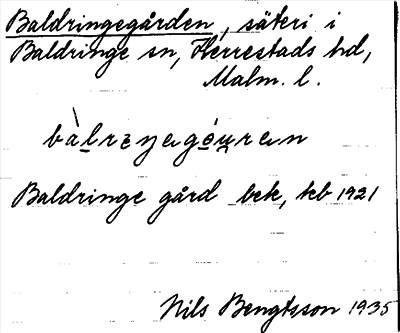 Baldringegården, säteri i
Baldringe sn, Herrestads hd,
Malm. l.
bàlrɪŋəgó̱u̱rən
Baldringe gård bek, kb 1921
Nils Bengtsson 1935